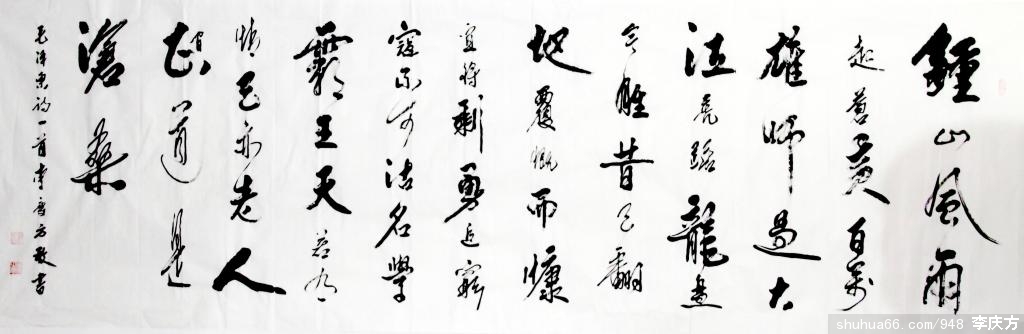 鍾山風雨
起蒼黃百萬
雄師過大
江虎踞龍盘
今勝昔天翻
地覆慨而慷
宜將剩勇追窮
寇不可沽名學
霸王天若有
情天亦老人
間正道是
滄桑
毛泽東詩一首李慶方敬書
shuhua66.com/948 李庆方